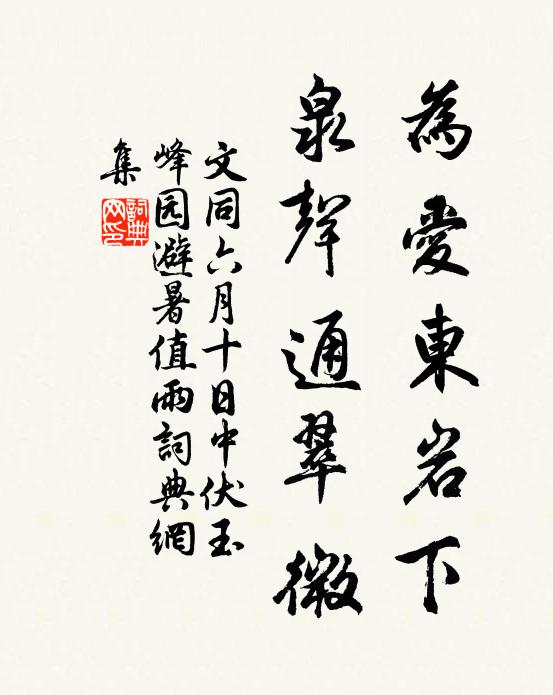 為愛東岩下
泉聲通翠微
文同六月十日中伏玉
峰园避暑值雨詞典網
集
詞典
网印